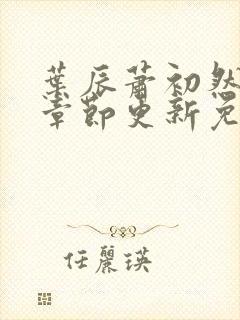 葉辰蕭初然
章節更新免
任麗瑛